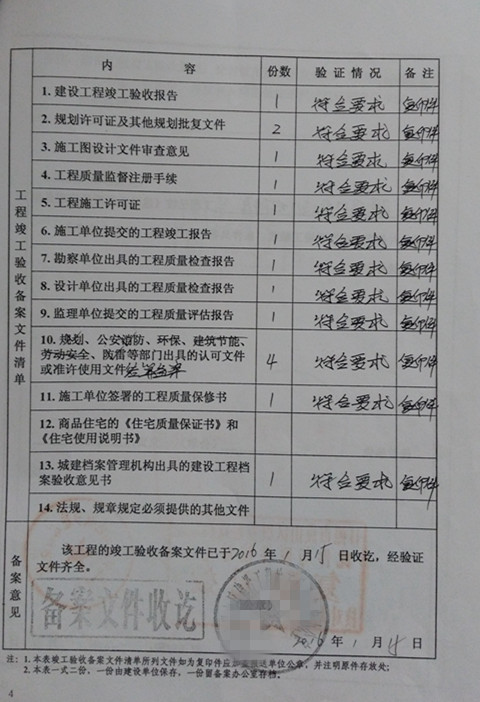 工程竣工验收备案文件清单
内 容 份数 验证情况 备注
1. 建设工程竣工验收报告 1 符合要求 复印件
2. 规划许可证及其他规划批复文件 2 符合要求 复印件
3. 施工图设计文件审查意见 1 符合要求 复印件
4. 工程质量监督注册手续 1 符合要求 复印件
5. 工程施工许可证 1 符合要求 复印件
6. 施工单位提交的工程竣工报告 1 符合要求 复印件
7. 勘察单位出具的工程质量检查报告 1 符合要求 复印件
8. 设计单位出具的工程质量检查报告 1 符合要求 复印件
9. 监理单位提交的工程质量评估报告 1 符合要求 复印件
10. 规划、公安消防、环保、建筑节能、
劳动安全、防雷等部门出具的认可文件 4 符合要求 复印件
或准许使用文件
11. 施工单位签署的工程质量保修书 1 符合要求 复印件
12. 商品住宅的《住宅质量保证书》和
《住宅使用说明书》
13. 城建档案管理机构出具的建设工程档
案验收意见书 1 符合要求 复印件
14. 法规、规章规定必须提供的其他文件
备案意见
该工程的竣工验收备案文件已于2016年1月15日收讫，经验证
文件齐全。
备案文件收讫
2016年1月15日
注：1. 本表竣工验收备案文件清单所列文件如为复印件应加盖报送单位公章，并注明原件存放处；
2. 本表一式二份，一份由建设单位保存，一份留备案办公室存档。
4